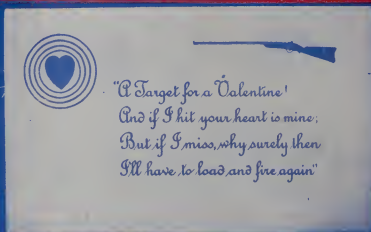 "A Target for a Valentine!
And if I hit your heart is mine;
But if I miss, why surely then
I'll have to load and fire again"